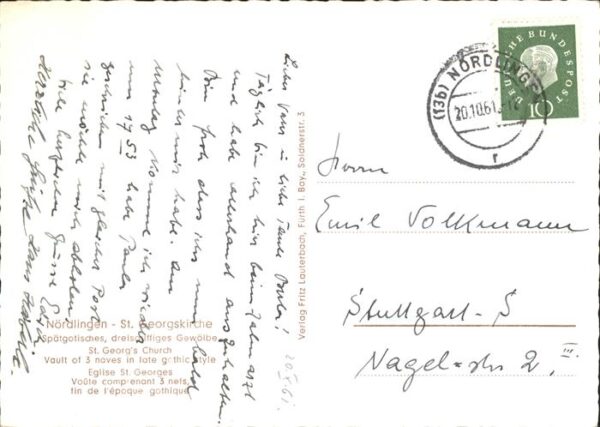 Lieber Vater u. liebe Tante Berta!
Täglich bin ich hier beim Zahnarzt
und habe allerhand auszuhalten.
Bin froh dass ich nun bald
hinter mir habe. Am
Montag komme ich wieder
um 17 53 habe Paula
geschrieben mit gleicher Post
sie möchte mich abholen.
Viele herzliche Grüsse
Herzliche Grüße
20.X.61.
Nördlingen - St. Georgskirche
Spätgotisches, dreischiffiges Gewölbe
St. Georg's Church
Vault of 3 noves in late gothic style
Eglise St. Georges
Voûte comprenant 3 nefs,
fin de l'époque gothique
Verlag Fritz Lauterbach, Fürth i. Bay., Soldnerstr. 3
DEUTSCHE BUNDESPOST
10
(13b) NÖRDLINGEN
20.10.61.-12
r
Herrn
Emil Volkmann
Stuttgart-S
Nagelstr. 2, III.